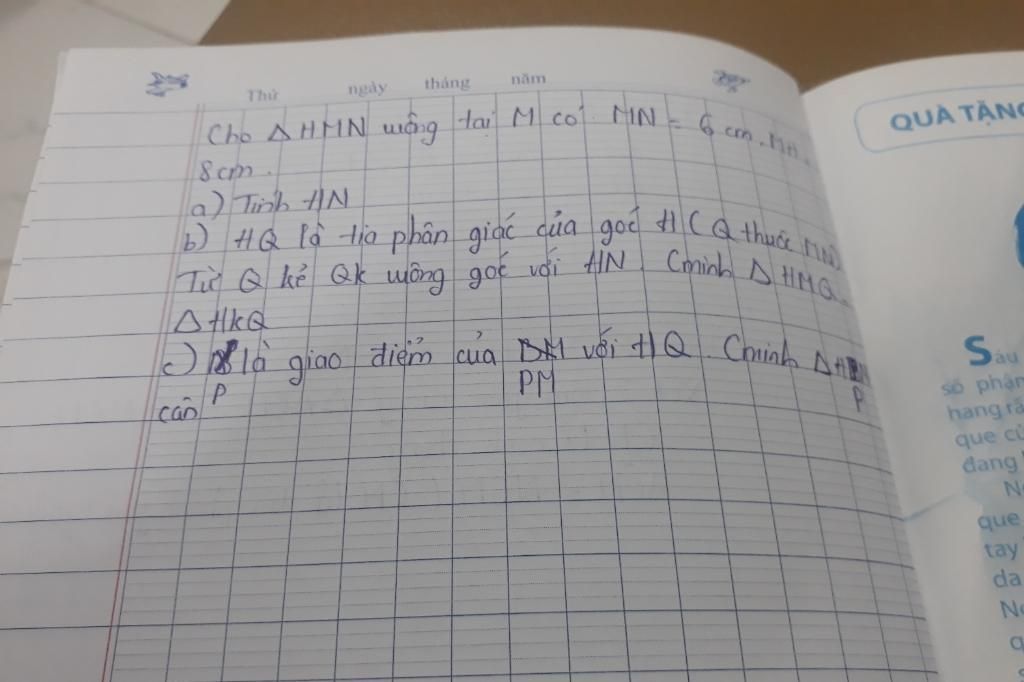 Thứ ngày tháng năm
Cho Δ HMN vuông tại M có MN = 6 cm. MH.
8cm.
a) Tính HN
b) HQ là tia phân giác của góc H (Q thuộc MN)
Từ Q kẻ Qk vuông góc với HN. Cminh Δ HMQ.
Δ HkQ
c) là giao điểm của DM với HQ. Cminh ΔH
P PM P
cân
QUÀ TẶNG
Sáu
số phận
hang
que
đang
que
tay
da